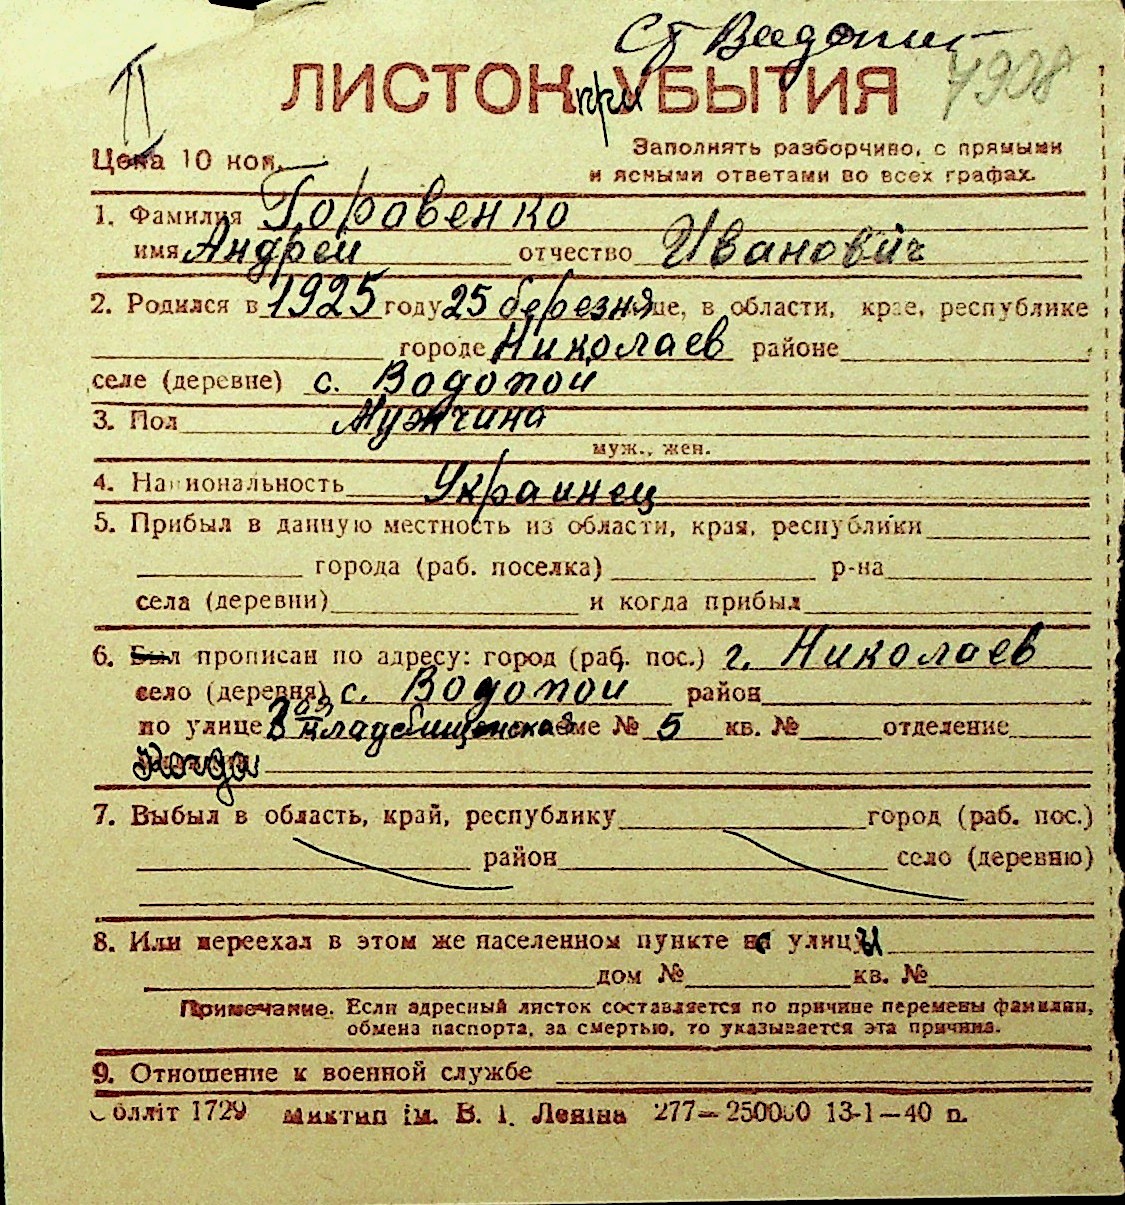 Ст Водопой
ЛИСТОК при УБЫТИЯ 7908
II
Цена 10 коп.
Заполнять разборчиво, с прямыми
и ясными ответами во всех графах.
1. Фамилия Горавенко
имя Андрей отчество Иванович
2. Родился в 1925 году 25 березня в области, крае, республике
городе Николаев районе
селе (деревне) с. Водопой
3. Пол Мужчина
муж., жен.
4. Национальность Украинец
5. Прибыл в данную местность из области, края, республики
города (раб. поселка) р-на
села (деревни) и когда прибыл
6. Был прописан по адресу: город (раб. пос.) г. Николаев
село (деревня) с. Водопой район
по улице доме № 5 кв. № отделение
7. Выбыл в область, край, республику город (раб. пос.)
район село (деревню)
8. Или переехал в этом же населенном пункте на улицу
дом № кв. №
Примечание. Если адресный листок составляется по причине перемены фамилии,
обмена паспорта, за смертью, то указывается эта причина.
9. Отношение к военной службе
Облліт 1729 Миктип ім. В. І. Леніна 277—250000 13-1—40 п.